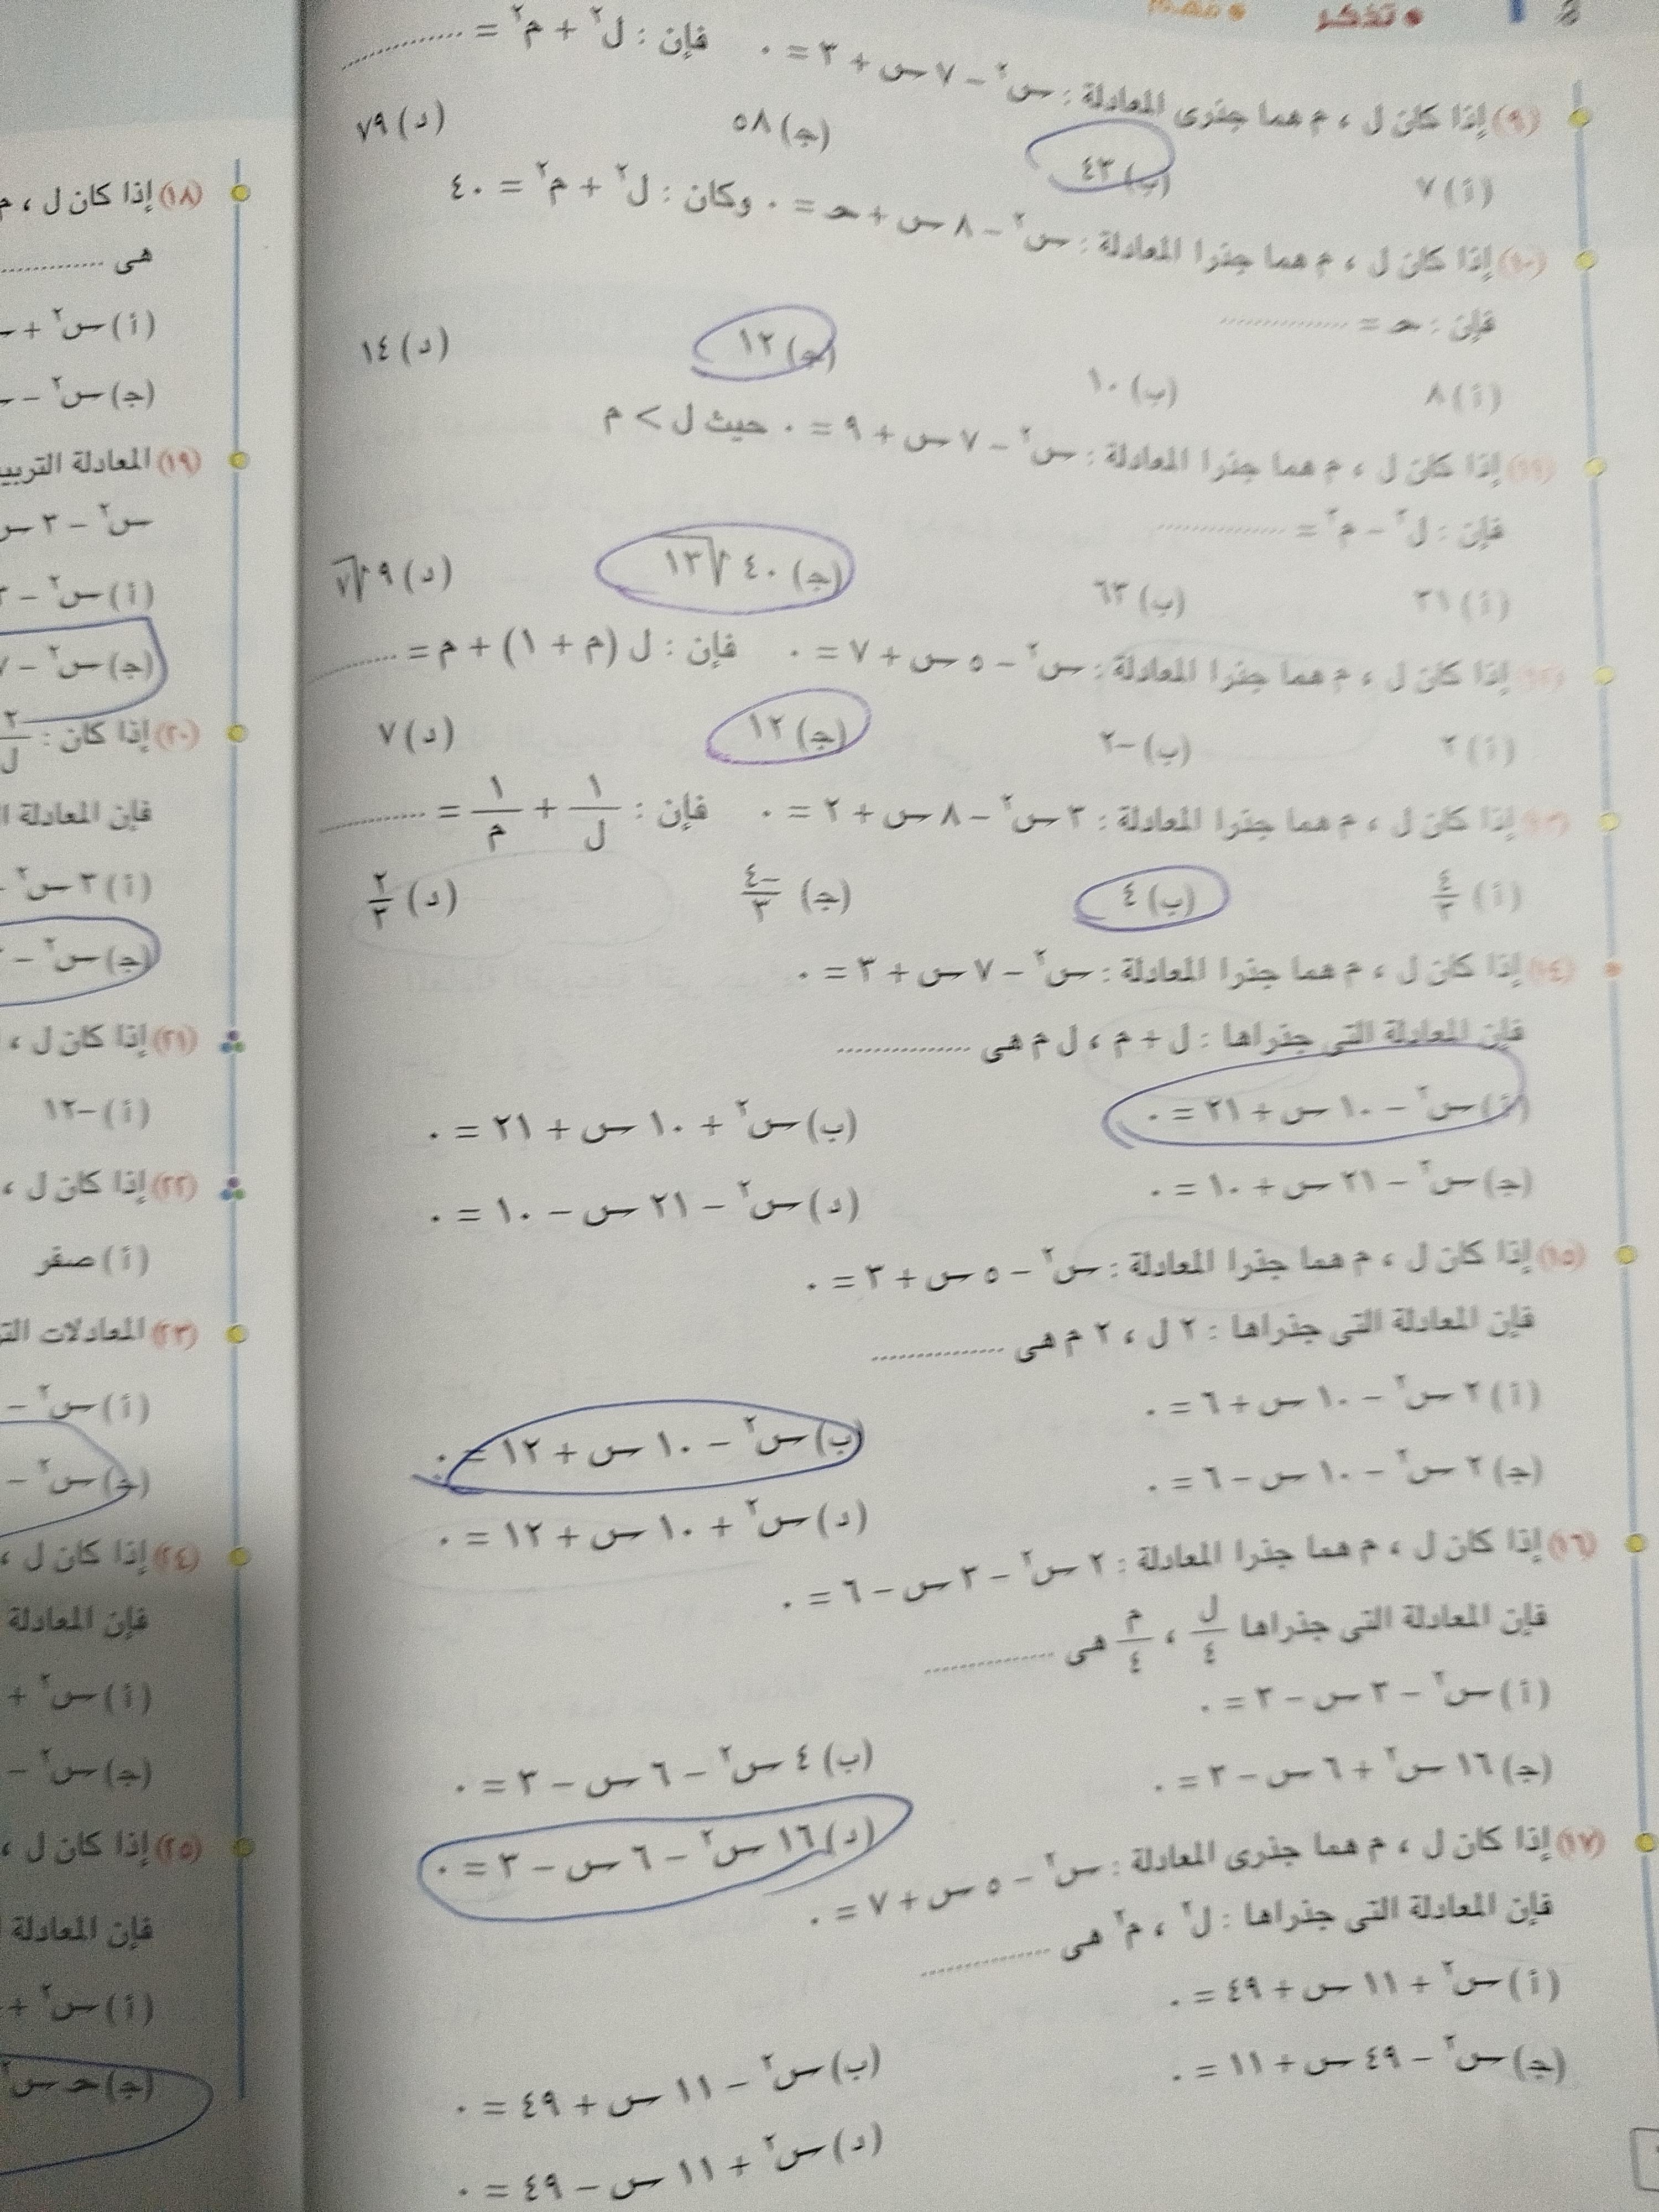 • تذكر • فهم
(٩) إذا كان ل ، م هما جذرى المعادلة : س٢ – ٧ س + ٣ = ٠ فإن : ل٢ + م٢ = ..............
(أ) ٧ (ب) ٤٣ (ج) ٥٨ (د) ٧٩
(١٠) إذا كان ل ، م هما جذرا المعادلة : س٢ – ٨ س + حـ = ٠ وكان : ل٢ + م٢ = ٤٠
فإن : حـ = ..............
(أ) ٨ (ب) ١٠ (ج) ١٢ (د) ١٤
(١١) إذا كان ل ، م هما جذرا المعادلة : س٢ – ٧ س + ٩ = ٠ حيث ل > م
فإن : ل٣ – م٣ = ..............
(أ) ٢١ (ب) ٦٣ (ج) ٤٠ √١٣ (د) ٩ √٧
(١٢) إذا كان ل ، م هما جذرا المعادلة : س٢ – ٥ س + ٧ = ٠ فإن : ل (م + ١) + م = ..............
(أ) ٢ (ب) –٢ (ج) ١٢ (د) ٧
(١٣) إذا كان ل ، م هما جذرا المعادلة : ٣ س٢ – ٨ س + ٢ = ٠ فإن : ١/ل + ١/م = ..............
(أ) ٤/٣ (ب) ٤ (ج) –٤/٣ (د) ٢/٣
(١٤) إذا كان ل ، م هما جذرا المعادلة : س٢ – ٧ س + ٣ = ٠
فإن المعادلة التى جذراها : ل + م ، ل م هى ..............
(أ) س٢ – ١٠ س + ٢١ = ٠ (ب) س٢ + ١٠ س + ٢١ = ٠
(ج) س٢ – ٢١ س + ١٠ = ٠ (د) س٢ – ٢١ س – ١٠ = ٠
(١٥) إذا كان ل ، م هما جذرا المعادلة : س٢ – ٥ س + ٣ = ٠
فإن المعادلة التى جذراها : ٢ ل ، ٢ م هى ..............
(أ) ٢ س٢ – ١٠ س + ٦ = ٠ (ب) س٢ – ١٠ س + ١٢ = ٠
(ج) ٢ س٢ – ١٠ س – ٦ = ٠ (د) س٢ + ١٠ س + ١٢ = ٠
(١٦) إذا كان ل ، م هما جذرا المعادلة : ٢ س٢ – ٣ س – ٦ = ٠
فإن المعادلة التى جذراها ل/٤ ، م/٤ هى ..............
(أ) س٢ – ٣ س – ٣ = ٠ (ب) ٤ س٢ – ٦ س – ٣ = ٠
(ج) ١٦ س٢ + ٦ س – ٣ = ٠ (د) ١٦ س٢ – ٦ س – ٣ = ٠
(١٧) إذا كان ل ، م هما جذرى المعادلة : س٢ – ٥ س + ٧ = ٠
فإن المعادلة التى جذراها : ل٢ ، م٢ هى ..............
(أ) س٢ + ١١ س + ٤٩ = ٠ (ب) س٢ – ١١ س + ٤٩ = ٠
(ج) س٢ – ٤٩ س + ١١ = ٠ (د) س٢ + ١١ س – ٤٩ = ٠
(١٨) إذا كان ل ، م
هى ..............
(أ) س٢ +
(ج) س٢ –
(١٩) المعادلة
س٢ – ٣ س
(أ) س٢ –
(ج) س٢ – ٧
(٢٠) إذا كان : ٢/ل
فإن المعادلة
(أ) ٣ س٢
(ج) س٢ –
(٢١) إذا كان ل ،
(أ) –١٢
(٢٢) إذا كان ل ،
(أ) صفر
(٢٣) المعادلات
(أ) س٢ –
(ج) س٢ –
(٢٤) إذا كان ل ،
فإن المعادلة
(أ) س٢ +
(ج) س٢ –
(٢٥) إذا كان ل ،
فإن المعادلة
(أ) س٢ +
(ج) حـ س٢